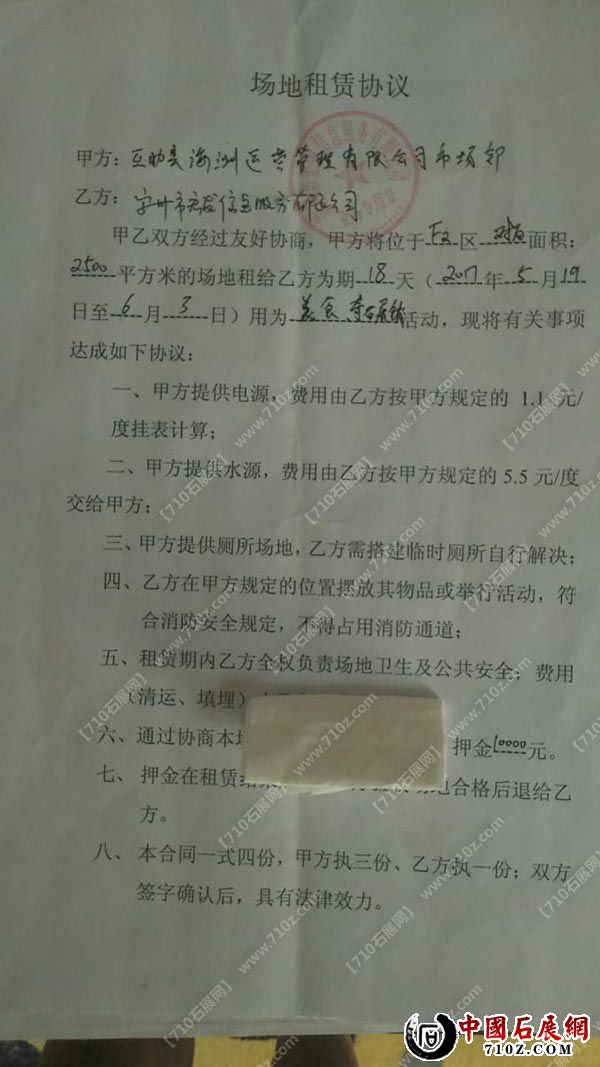 场地租赁协议
甲方：互助县海洲运营管理有限公司市场部
乙方：市宏发信息服务有限公司
甲乙双方经过友好协商，甲方将位于 区 面积：
2500平方米的场地租给乙方为期18天（2017年5月19
日至6月3日）用为美食 活动，现将有关事项
达成如下协议：
一、甲方提供电源，费用由乙方按甲方规定的 1.1 元/
度挂表计算；
二、甲方提供水源，费用由乙方按甲方规定的 5.5 元/度
交给甲方；
三、甲方提供厕所场地，乙方需搭建临时厕所自行解决；
四、乙方在甲方规定的位置摆放其物品或举行活动，符
合消防安全规定，不得占用消防通道；
五、租赁期内乙方全权负责场地卫生及公共安全；费用
（清运、填埋）
六、通过协商本场 押金10000元。
七、押金在租赁结束 合格后退给乙
方。
八、本合同一式四份，甲方执三份、乙方执一份；双方
签字确认后，具有法律效力。
【710石展网】www.710z.com
中國石展網
710Z.COM